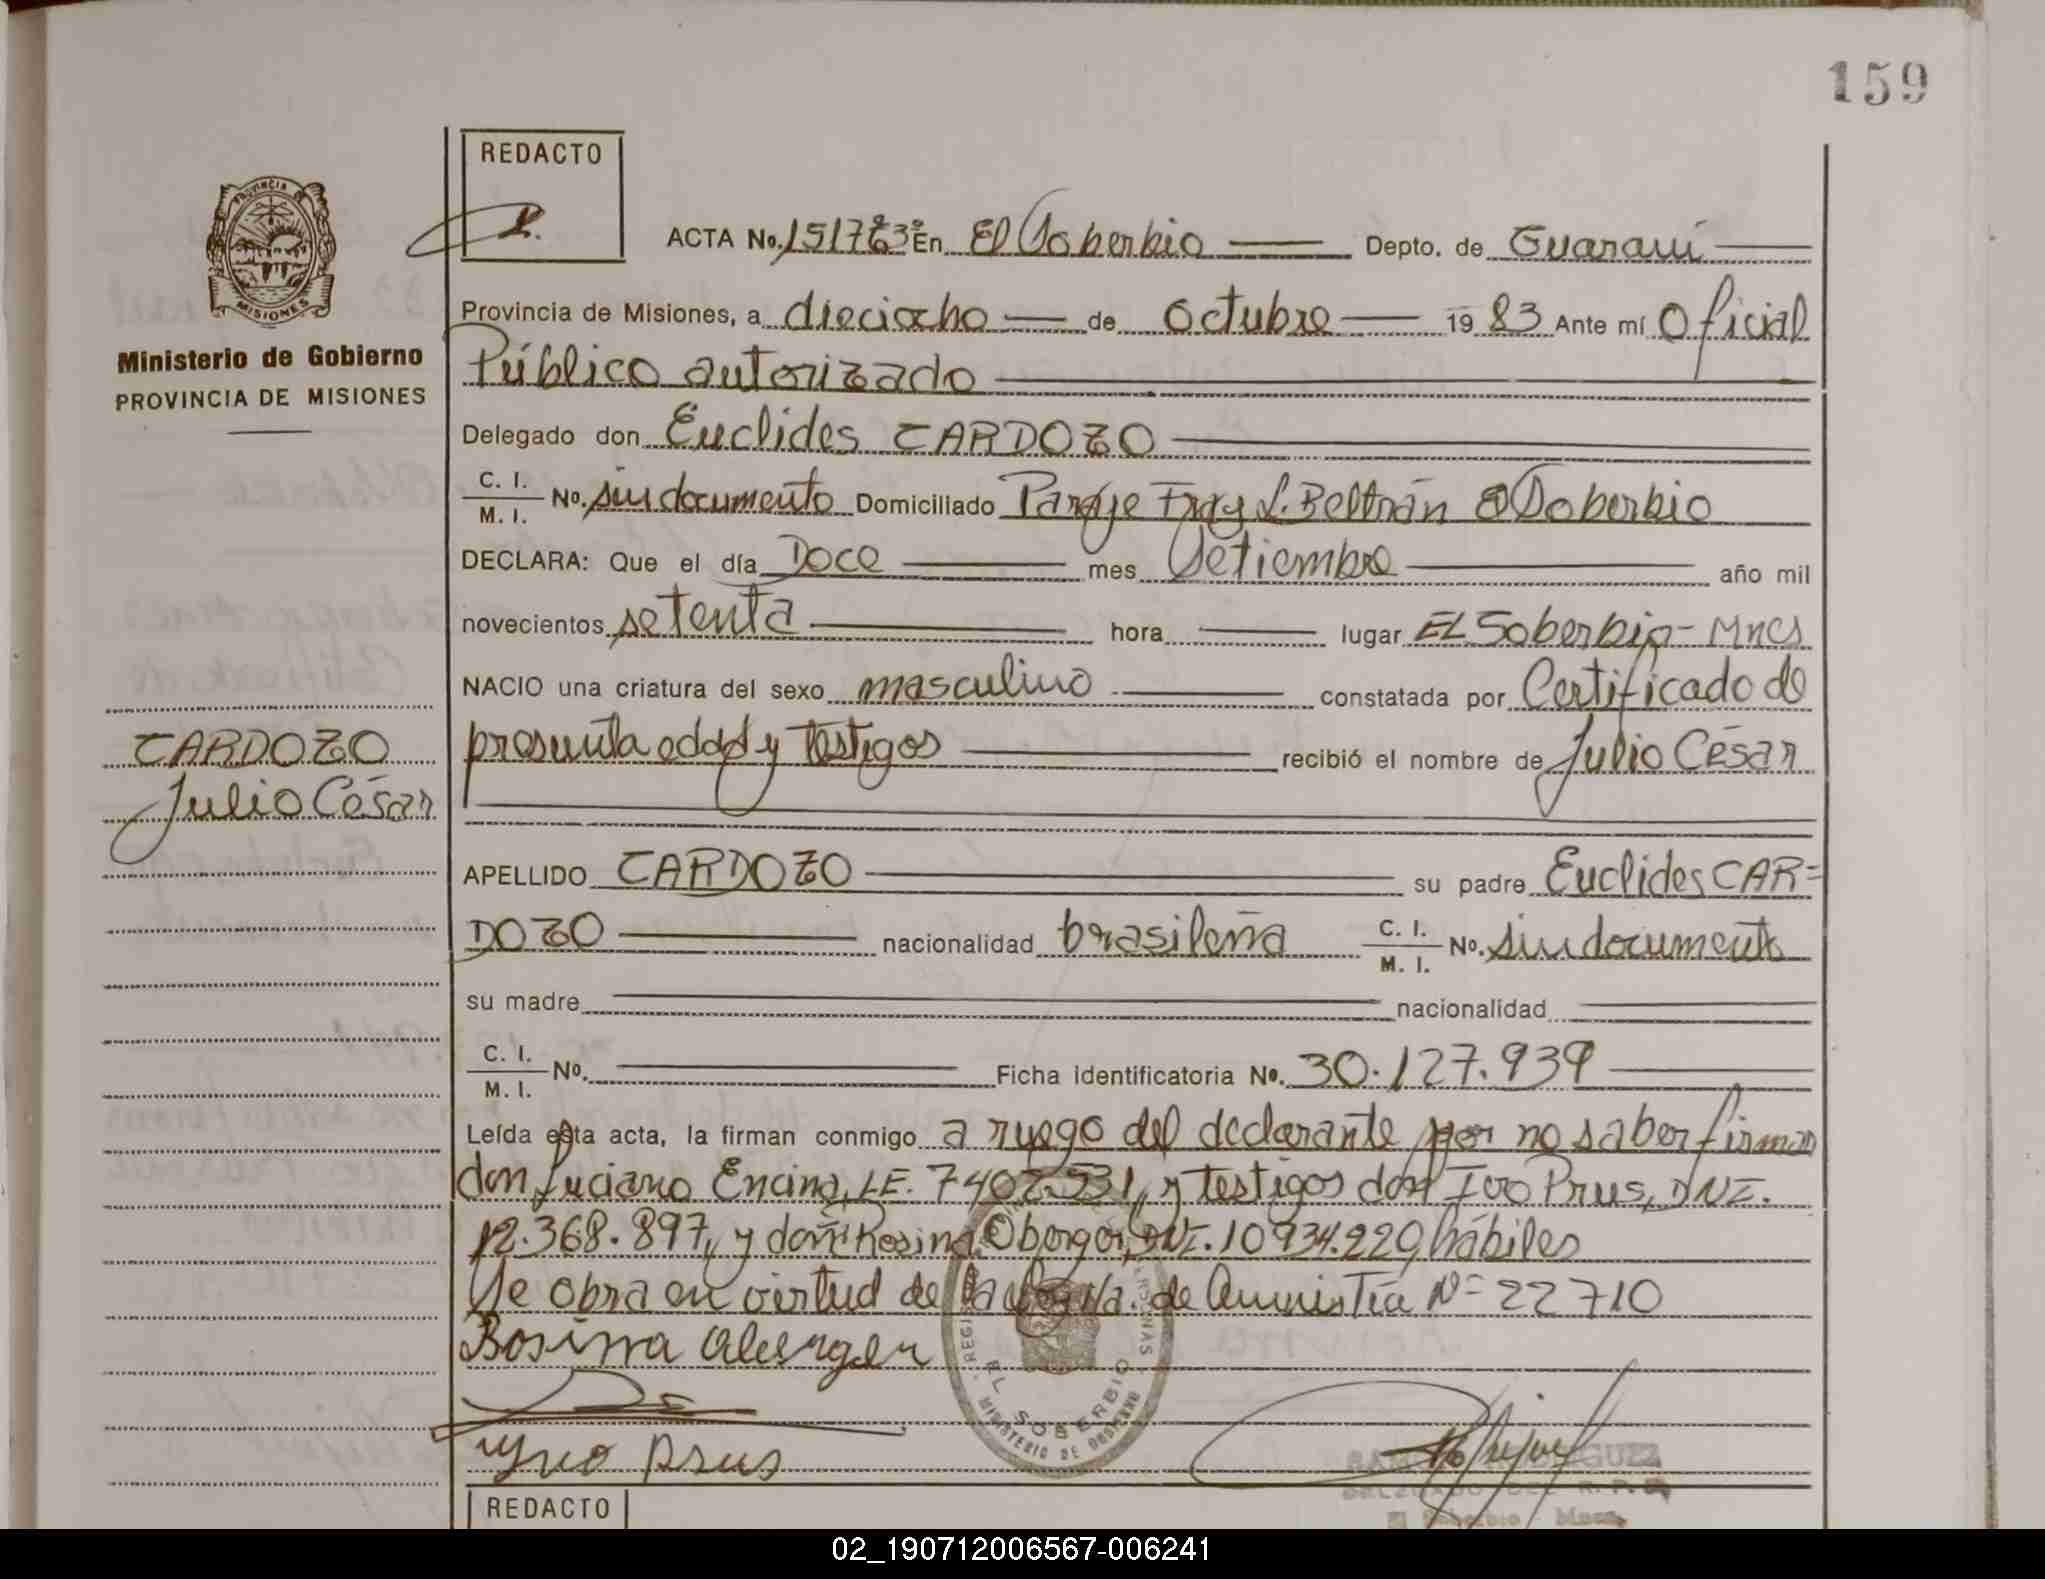 159
REDACTO
ACTA No. En El Soberbio Depto. de Guaraní
Provincia de Misiones, a dieciocho de Octubre 19 83 Ante mí Oficial
Público autorizado
Delegado don Euclides CARDOZO
C. I.
M. I. No. sin documento Domiciliado Paraje Fray L. Beltrán El Soberbio
DECLARA: Que el día Doce mes Setiembre año mil
novecientos setenta hora lugar EL Soberbio - Mnes
NACIO una criatura del sexo masculino constatada por Certificado de
presunta edad y testigos recibió el nombre de Julio César
APELLIDO CARDOZO su padre Euclides CAR=
DOZO nacionalidad brasileña C. I.
M. I. No. sin documento
su madre nacionalidad
C. I.
M. I. No. Ficha identificatoria No. 30.127.939
Leída esta acta, la firman conmigo a ruego del declarante por no saber firmar
don Luciano Encina, L.E. y testigos don Ivo Prus, DNI.
12.368.897, y doña Rosina DNI. 10934.229 hábiles
Se obra en virtud de la de Amnistía Nº 22710
Rosina
Yvo Prus
REDACTO
PROVINCIA
MISIONES
Ministerio de Gobierno
PROVINCIA DE MISIONES
CARDOZO
Julio César
EL SOBERBIO
MINISTERIO DE GOBIERNO
02_190712006567-006241